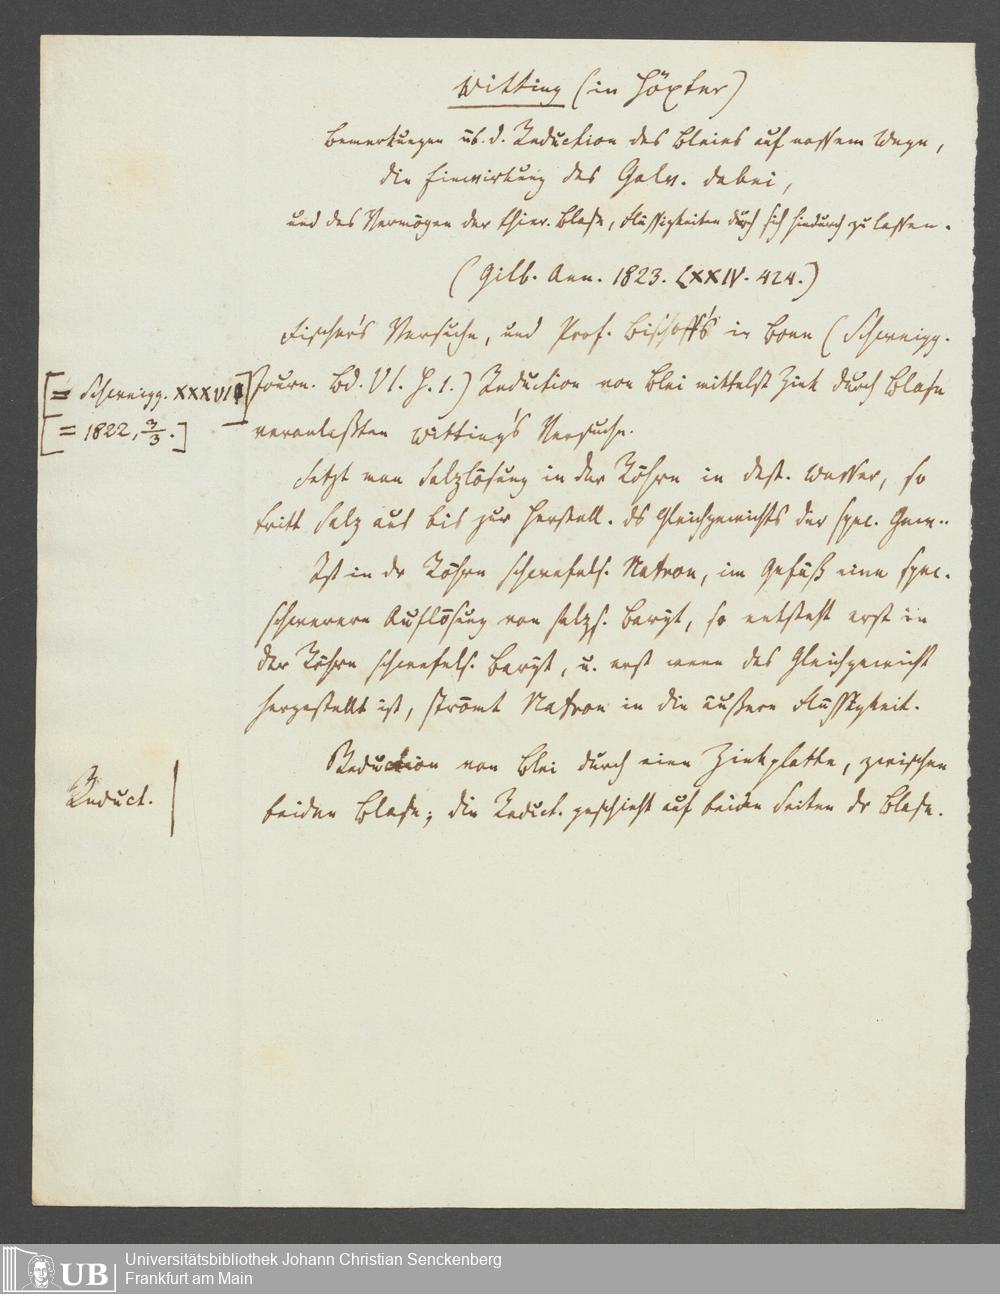 Witting (in Höxter)
Bemerkungen üb. d. Reduction des Bleies auf nassem Wege,
die Einwirkung des Galv. dabei,
und des Vermögen der thier. Blase, Flüssigkeiten durch sich hindurch zu lassen.
(Gilb. Ann. 1823. LXXIV. 424.)
Fischer's Versuche, und Prof. Bischoff's in Bonn (Schweigg.
[= Schweigg. XXXVI]
Journ. Bd. VI. H. 1.) Reduction von Blei mittelst Zink durch Blase
[= 1822, 3/3.]
veranlaßten Witting's Versuche.
Setzt man Salzlösung in der Röhre in dest. Wasser, so
tritt Salz aus bis zur Herstell. ds Gleichgewichts der spec. Gew..
Ist in dr Röhre schwefels. Natron, im Gefäß eine spec.
schwerere Auflösung von salzs. Baryt, so entsteht erst in
der Röhre schwefels. Baryt, u. erst wenn das Gleichgewicht
hergestellt ist, strömt Natron in die äußere Flüssigkeit.
Reduct.
Reduction von Blei durch eine Zinkplatte, zwischen
beiden Blase; die Reduct. geschieht auf beiden Seiten dr Blase.
UB
Universitätsbibliothek Johann Christian Senckenberg
Frankfurt am Main